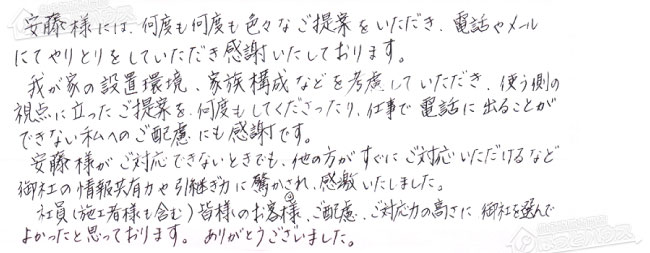 安藤様には、何度も何度も色々なご提案をいただき、電話やメール
にてやりとりをしていただき感謝いたしております。
我が家の設置環境、家族構成などを考慮していただき、使う側の
視点に立ったご提案を何度もしてくださったり、仕事で電話に出ることが
できない私へのご配慮にも感謝です。
安藤様がご対応できないときでも、他の方がすぐにご対応いただけるなど
御社の情報共有力や引継ぎ力に驚かされ、感激いたしました。
社員(施工者様も含む)皆様のお客様へのご配慮、ご対応力の高さに御社を選んで
よかったと思っております。ありがとうございました。